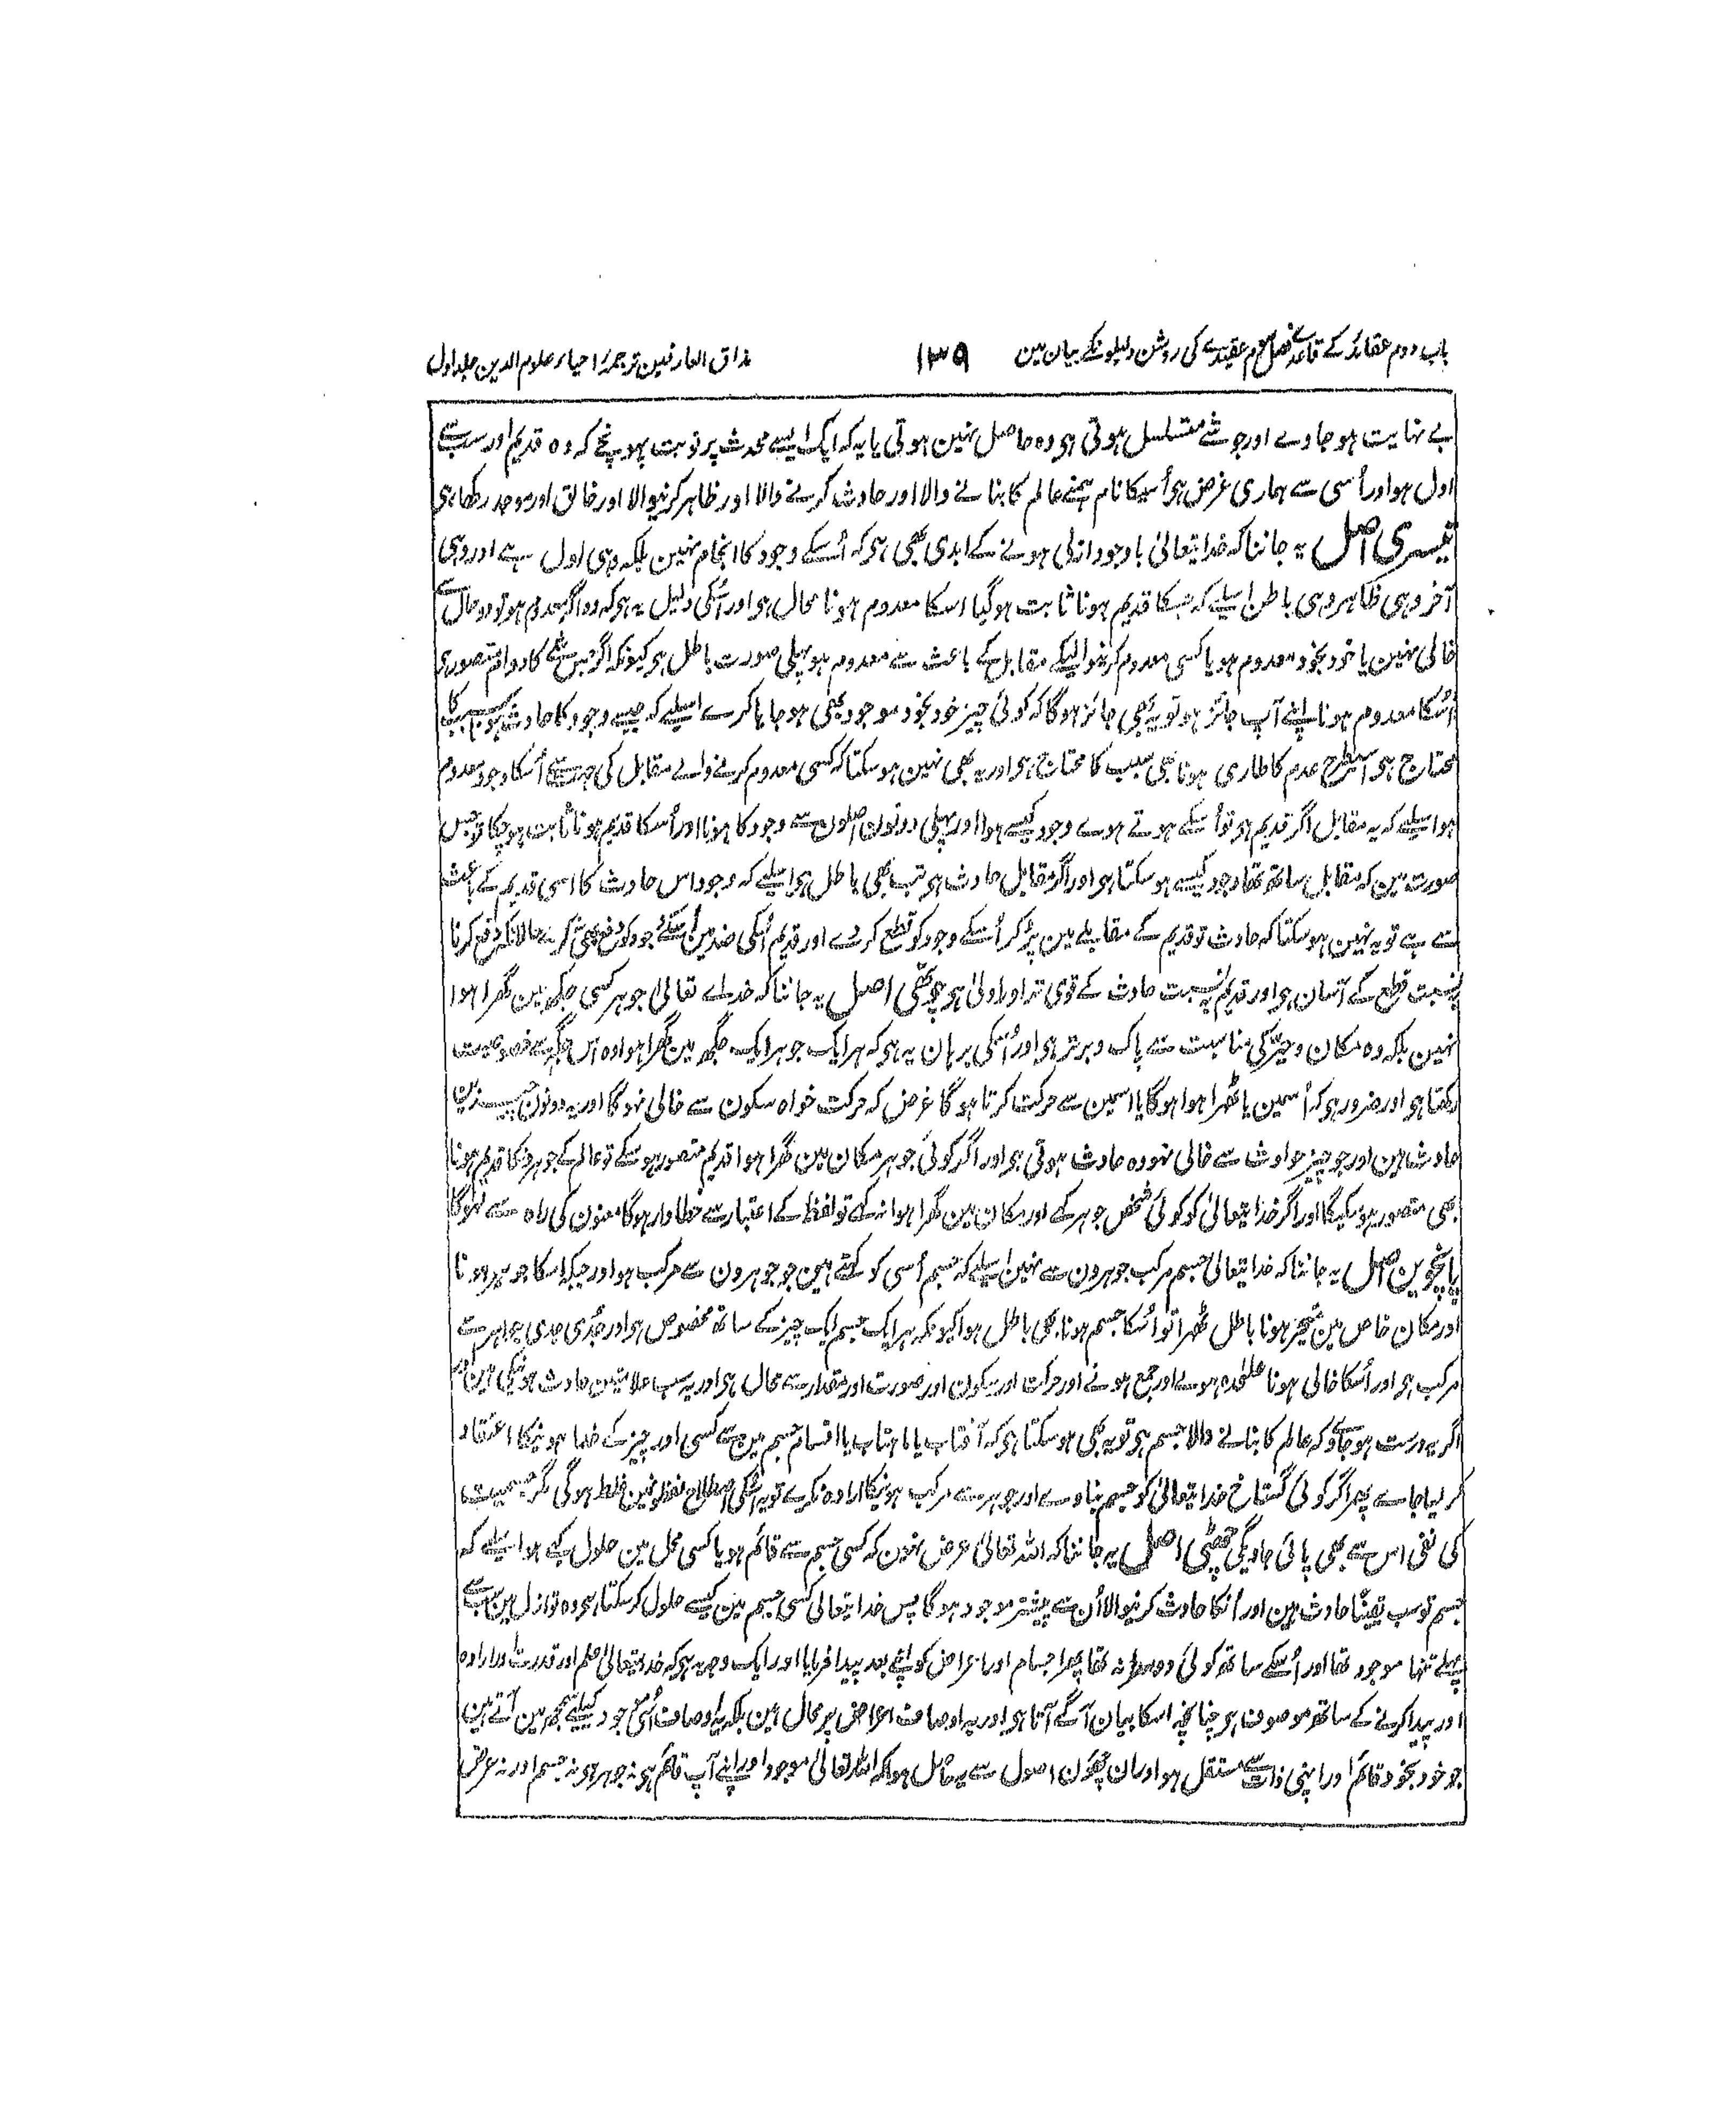 باب دوم عقائد کے قاعدے فصل سوم عقیدے کی روشن دلیلونکے بیان مین ۱۳۹ مذاق العارفین ترجمۂ احیاء علوم الدین جلد اول
بے نہایت ہو جاوے اور جو شے متسلسل ہوتی ہی وہ حاصل نہین ہوتی یا یہ کہ ایک ایسے محدث پر نوبت پہونچے کہ وہ قدیم اور سب سے
اول ہو اور اُسی سے ہماری غرض ہی اُسیکا نام ہمنے عالم کا بنانے والا اور حادث کرنے والا اور ظاہر کرنیوالا اور خالق اور موجد رکھا ہی
تیسری اصل یہ جاننا کہ خدا یتعالیٰ باوجود ازلی ہونے کے ابدی بھی ہی کہ اُسکے وجود کا انجام نہین بلکہ وہی اول ہے اور وہی
آخر وہی ظاہر وہی باطن اسلیے کہ جسکا قدیم ہونا ثابت ہو گیا اسکا معدوم ہونا محال ہی اور اُسکی دلیل یہ ہی کہ وہ اگر معدوم ہو تو دو حال سے
خالی نہین یا خود بخود معدوم ہو یا کسی معدوم کرنیوالیکے مقابل کے باعث سے معدوم ہو پہلی صورت باطل ہی کیونکہ اگر جس شے کا دوام متصور ہی
اُسکا معدوم ہونا اپنے آپ جائز ہو تو یہ بھی جائز ہو گا کہ کوئی چیز خود بخود موجود بھی ہو جایا کرے اسلیے کہ جیسے وجود کا حادث ہونا سبب کا
محتاج ہی اسیطرح عدم کا طاری ہونا بھی سبب کا محتاج ہی اور یہ بھی نہین ہو سکتا کہ کسی معدوم کرنے والے مقابل کی جہت سے اُسکا وجود معدوم
ہو اسلیے کہ یہ مقابل اگر قدیم ہو تو اُسکے ہوتے ہوے وجود کیسے ہوا اور پہلی دونون اصلون سے وجود کا ہونا اور اُسکا قدیم ہونا ثابت ہو چکا تو جس
صورت مین کہ مقابل ساتھ تھا وجود کیسے ہو سکتا ہی اور اگر مقابل حادث ہو تب بھی باطل ہی اسلیے کہ وجود اس حادث کا اسی قدیم کے باعث
سے ہے تو یہ نہین ہو سکتا کہ حادث تو قدیم کے مقابلے مین پڑ کر اُسکے وجود کو قطع کر دے اور قدیم اُسکی ضد مین اُسکے وجود کو دفع بھی نکرے حالانکہ دفع کرنا
بنسبت قطع کے آسان ہی اور قدیم بنسبت حادث کے قوی تر اور اولیٰ ہی چوتھی اصل یہ جاننا کہ خداے تعالیٰ جوہر کسی جگہ مین گھرا ہوا
نہین بلکہ وہ مکان و حیز کی مناسبت سے پاک و برتر ہی اور اُسکی برہان یہ ہی کہ ہر ایک جوہر ایک جگہ مین گھرا ہوا وہ اس جگہ سے خصوصیت
رکھتا ہی اور ضرور ہی کہ اُسمین یا ٹھرا ہوا ہوگا یا اسمین سے حرکت کرتا ہوگا غرض کہ حرکت خواہ سکون سے خالی نہوگا اور یہ دونون چیزین
حادث ہین اور جو چیز حوادث سے خالی نہو وہ حادث ہوتی ہی اور اگر کوئی جوہر مکان مین گھرا ہوا قدیم متصور ہو سکے تو عالم کے جوہرونکا قدیم ہونا
بھی متصور ہو سکیگا اور اگر خدا یتعالیٰ کو کوئی شخص جوہر کہے اور مکان مین گھرا ہوا نہ کہے تو لفظ کے اعتبار سے خطاوار ہوگا معنون کی راہ سے نہوگا
پانچوین اصل یہ جاننا کہ خدا یتعالیٰ جسم مرکب جوہرون سے نہین اسلیے کہ جسم اُسی کو کہتے ہین جو جوہرون سے مرکب ہو اور جبکہ اسکا جوہر ہونا
اور مکان خاص مین متحیز ہونا باطل ٹھہرا تو اُسکا جسم ہونا بھی باطل ہوا کیونکہ ہر ایک جسم ایک چیز کے ساتھ مخصوص ہی اور جُدی جدی جواہر سے
مرکب ہی اور اُسکا خالی ہونا علٰحدہ ہونے اور جمع ہونے اور حرکت اور سکون اور صورت اور مقدار سے محال ہی اور یہ سب علامتین حادث ہونیکی ہین اور
اگر یہ درست ہو جاوے کہ عالم کا بنانے والا جسم ہی تو یہ بھی ہو سکتا ہی کہ آفتاب یا ماہتاب یا اقسام جسم مین سے کسی اور چیز کے خدا ہونیکا اعتقاد
کر لیا جاے پھر اگر کوئی گستاخ خدا یتعالیٰ کو جسم بتاوے اور جوہر سے مرکب ہونیکا ارادہ نکرے تو یہ اُسکی اصطلاح لفظونمین غلط ہوگی مگر جسمیت
کی نفی اس سے بھی پائی جاویگی چھٹی اصل یہ جاننا کہ اللہ تعالیٰ عرض نہین کہ کسی جسم سے قائم ہو یا کسی محل مین حلول کیے ہو اسلیے کہ
جسم تو سب یقینًا حادث ہین اور اُنکا حادث کرنیوالا اُن سے پیشتر موجود ہوگا پس خدا یتعالیٰ کسی جسم مین کیسے حلول کر سکتا ہی وہ تو ازل مین سب سے
پہلے تنہا موجود تھا اور اُسکے ساتھ کوئی دوسرا نہ تھا پھر اجسام اور اعراض کو اپنے بعد پیدا فرمایا اور ایک وجہ یہ ہی کہ خدا یتعالیٰ علم اور قدرت اور ارادہ
اور پیدا کرنے کے ساتھ موصوف ہی چنانچہ اسکا بیان آگے آتا ہی اور یہ اوصاف اعراض پر محال ہین بلکہ یہ اوصاف اُسی موجود کیلیے سمجھ مین آتے ہین
جو خود بخود قائم اور اپنی ذات سے مستقل ہو اور ان چھؤن اصول سے یہ حاصل ہوا کہ اللہ تعالیٰ موجود اور اپنے آپ قائم ہی نہ جوہر ہی نہ جسم اور نہ عرض